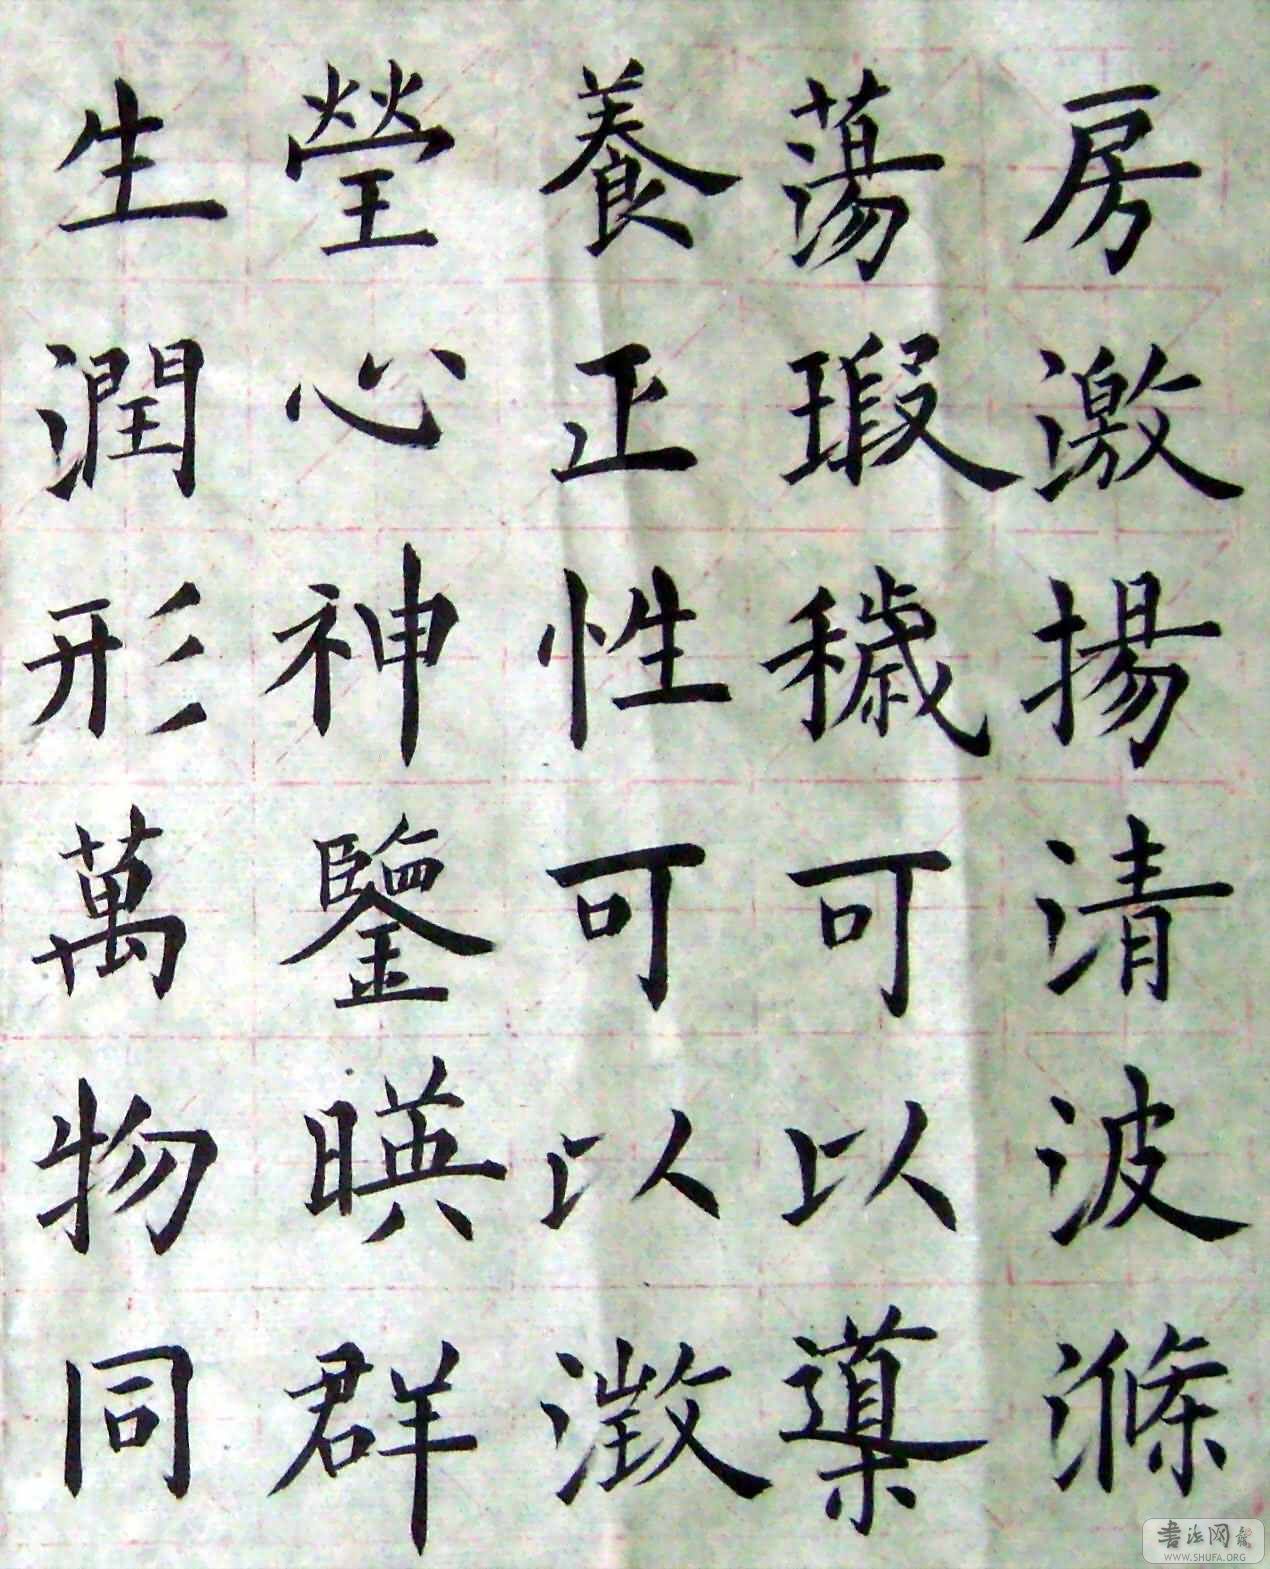 房激揚清波滌
蕩瑕穢可以導
養正性可以澂
瑩心神鑒暎群
生潤形萬物同
書法网
WWW.SHUFA.ORG